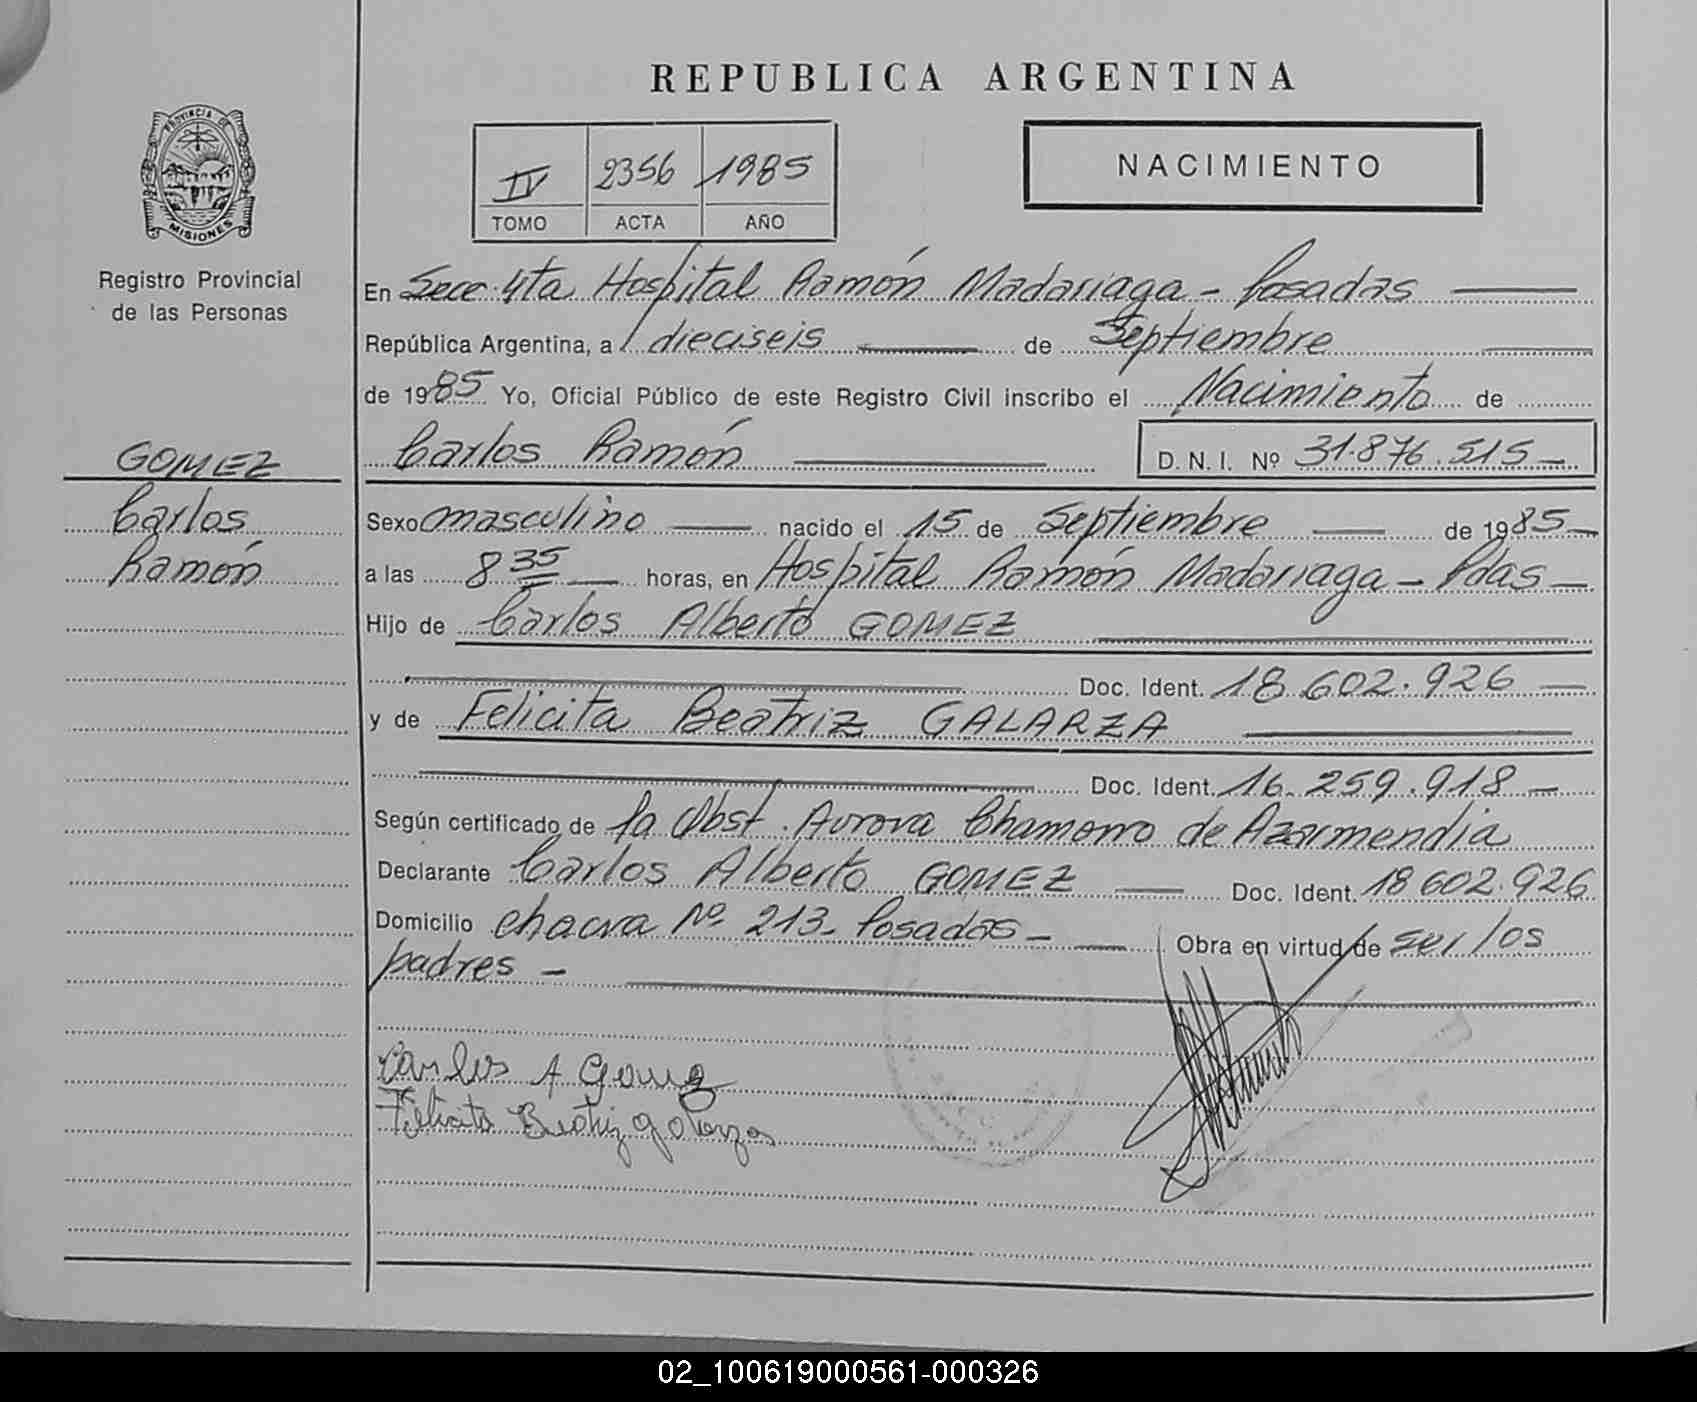 REPUBLICA ARGENTINA
PROVINCIA DE
MISIONES
Registro Provincial
de las Personas
IV 2356 1985
TOMO ACTA AÑO
NACIMIENTO
En Secc. 4ta Hospital Ramón Madariaga - Posadas
República Argentina, a dieciseis de Septiembre
de 1985 Yo, Oficial Público de este Registro Civil inscribo el Nacimiento de
Carlos Ramón D. N. I. Nº 31.876.515
GOMEZ
Carlos
Ramón
Sexo masculino nacido el 15 de Septiembre de 1985
a las 8 35 horas, en Hospital Ramón Madariaga - Pdas
Hijo de Carlos Alberto GOMEZ
Doc. Ident. 18.602.926
y de Felicita Beatriz GALARZA
Doc. Ident. 16.259.918
Según certificado de la Obst. Aurora Chamorro de Azarmendia
Declarante Carlos Alberto GOMEZ Doc. Ident. 18 602.926
Domicilio chacra Nº 213 - Posadas - Obra en virtud de ser los
padres -
Carlos A Gomez
Felicita Beatriz galarza
02_100619000561-000326